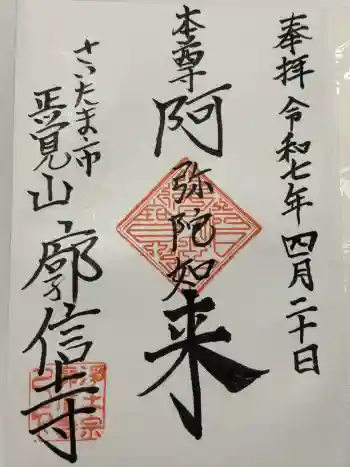 奉拝 令和七年四月二十日
本尊
阿弥陀如来
さいたま市
正覚山
廓信寺
浄土宗